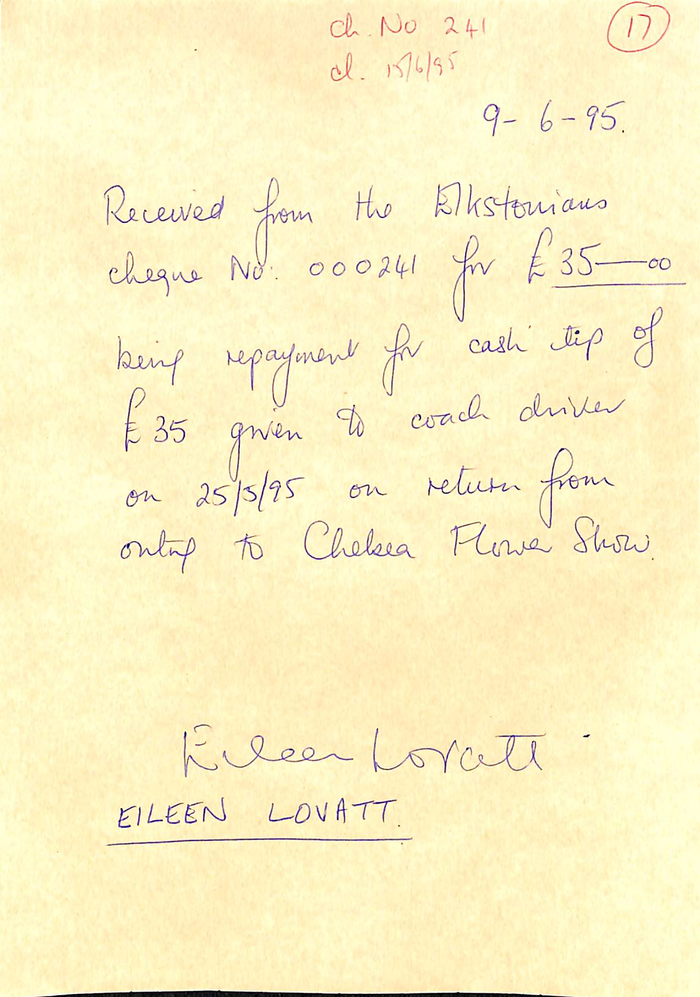 ch. No 241
17
cl. 15/6/95
9-6-95.
Received from the Elkstonians
cheque No. 000241 for £35—00
being repayment for cash tip of
£35 given to coach driver
on 25/5/95 on return from
outing to Chelsea Flower Show.
Eileen Lovatt
EILEEN LOVATT.